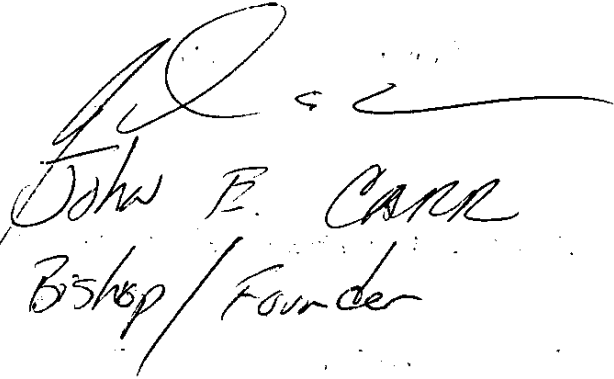 John E. Carr
Bishop/Founder